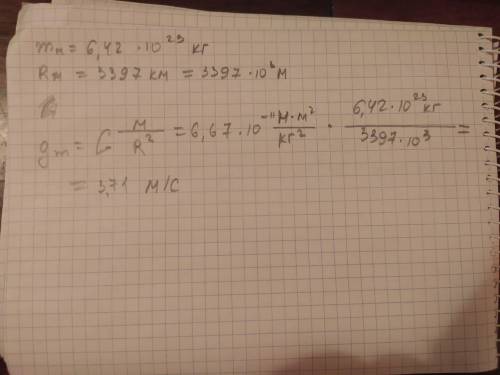 mм = 6,42 · 10²³ кг
Rм = 3397 км = 3397 · 10³ м
gm = G M/R² = 6,67 · 10⁻¹¹ Н · м²/кг² · 6,42 · 10²³ кг/3397 · 10³ =
= 3,71 м/с